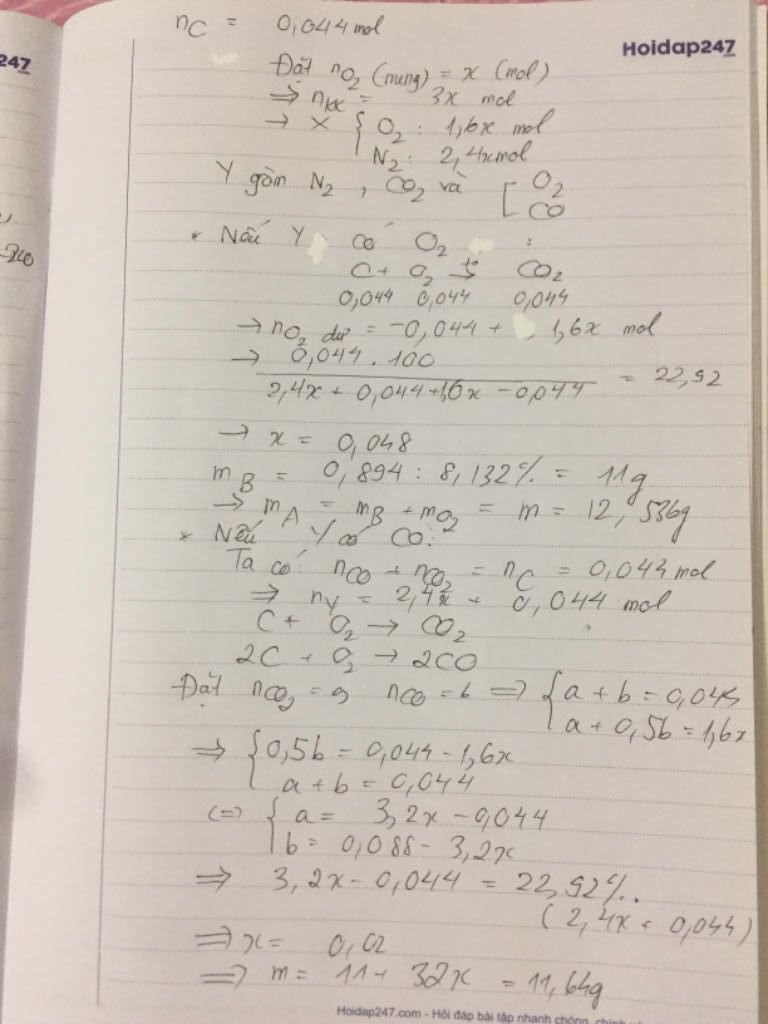 nC = 0,044 mol
Hoidap247
.com
247
Đặt nO2 (nung) = x (mol)
⇒ nkk = 3x mol
→ X { O2 : 1,6x mol
N2 : 2,4x mol
Y gồm N2 , CO2 và [ O2
CO
* Nếu Y có O2 :
C + O2 t° → CO2
0,044 0,044 0,044
→ nO2 dư = -0,044 + 1,6x mol
→ 0,044 . 100
2,4x + 0,044 + 1,6x - 0,044 = 22,92
→ x = 0,048
mB = 0,894 : 8,132% = 11g
→ mA = mB + mO2 = m = 12,536g
* Nếu Y có CO:
Ta có: nCO + nCO2 = nC = 0,044 mol
⇒ nY = 2,4x + 0,044 mol
C + O2 → CO2
2C + O2 → 2CO
Đặt nCO2 = a nCO = b ⇒ { a + b = 0,044
a + 0,5b = 1,6x
⇒ { 0,5b = 0,044 - 1,6x
a + b = 0,044
(=) { a = 3,2x - 0,044
b = 0,088 - 3,2x
⇒ 3,2x - 0,044 = 22,92%.
(2,4x + 0,044)
⇒ x = 0,02
⇒ m = 11 + 32x = 11,64g
Hoidap247.com - Hỏi đáp bài tập nhanh chóng, chính